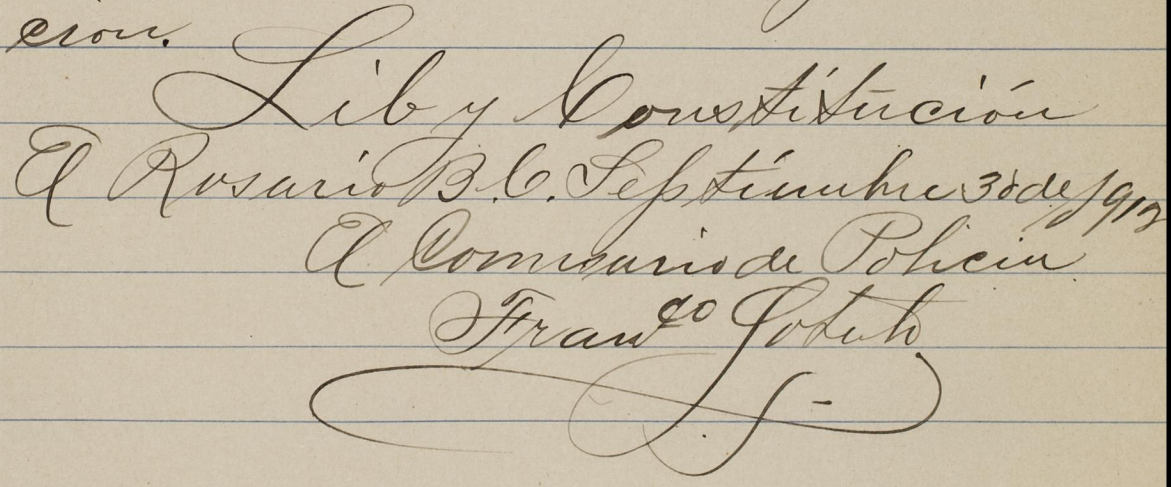 cion.
Lib y Constitución
El Rosario B.C. Septiembre 30 de 1912
El Comisario de Policia
Franco